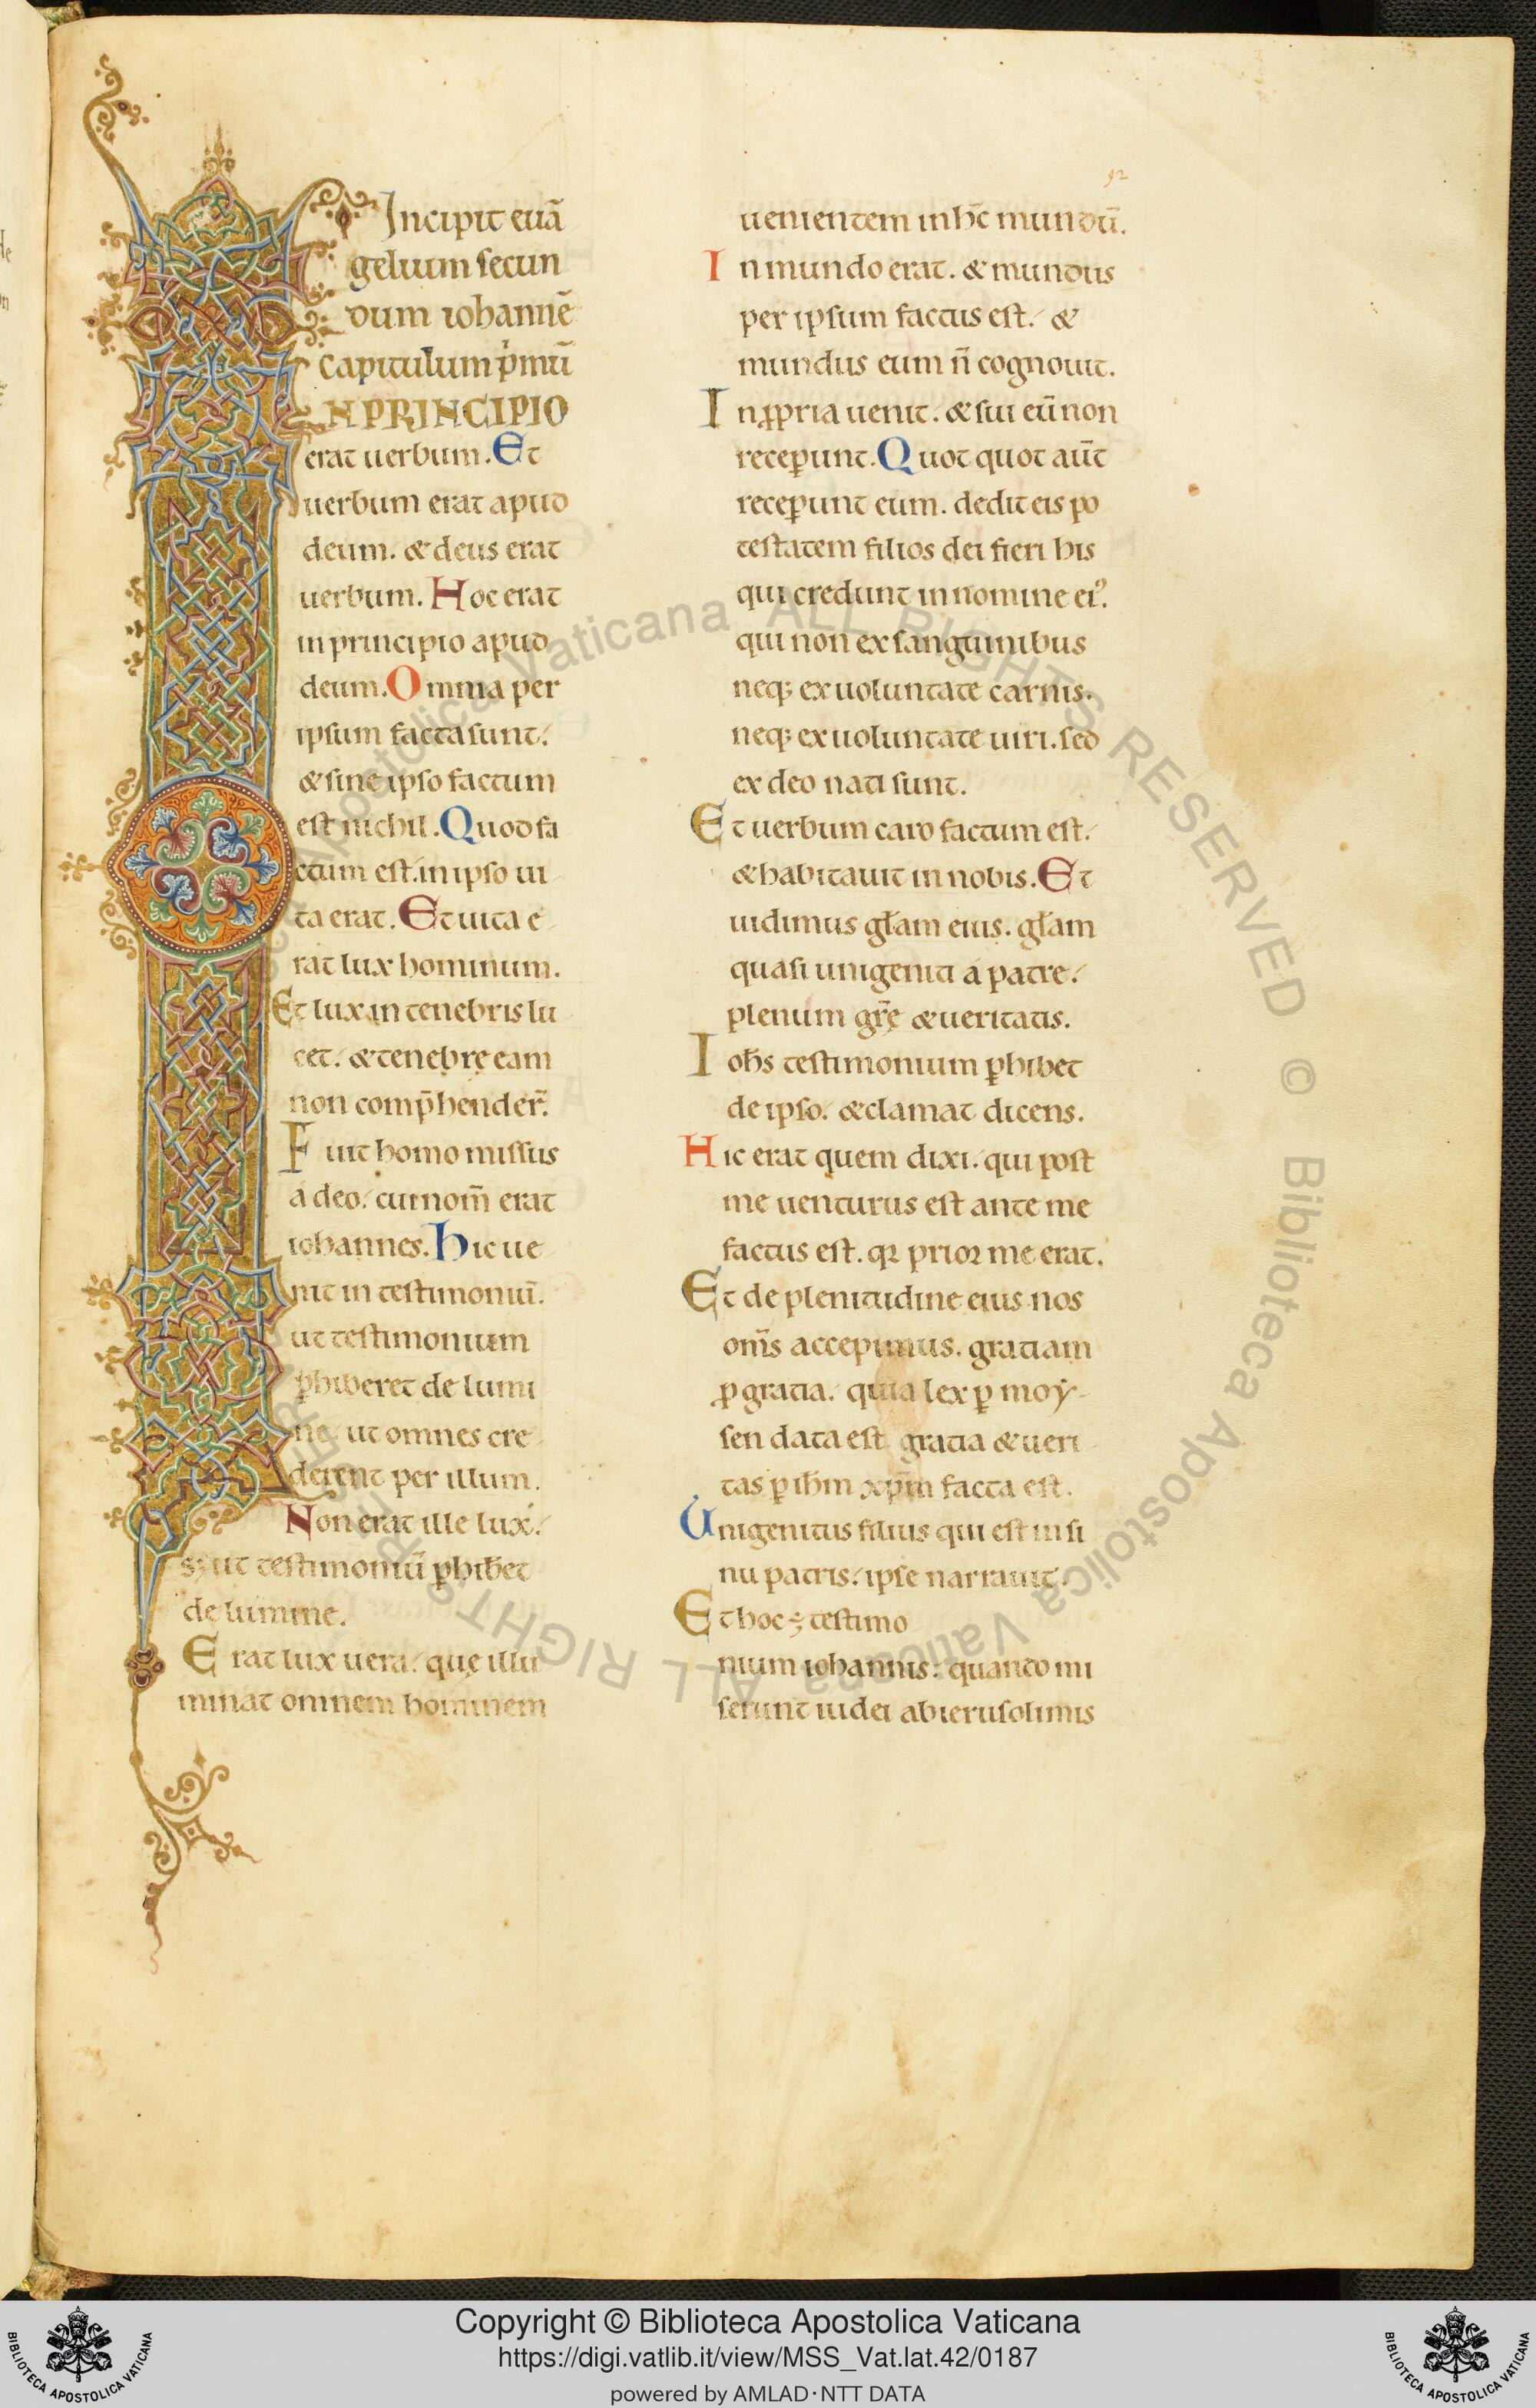 Incipit euā
gelium secun
dum iohannē
Capitulum p̍mū
N PRINCIPIO
erat uerbum. Et
uerbum erat apud
deum. & deus erat
uerbum. Hoc erat
in principio apud
deum. Omnia per
ipsum facta sunt.
& sine ipso factum
est nichil. Quod fa
ctum est. in ipso ui
ta erat. Et uita e
rat lux hominum.
Et lux in tenebris lu
cet. & tenebrę eam
non comp̄hender̄.
Fuit homo missus
a deo. cui nom̄ erat
iohannes. Hic ue
nit in testimoniū.
ut testimonium
ꝑhiberet de lumi
ne. ut omnes cre
derent per illum.
Non erat ille lux.
sꝫ ut testimoniū ꝑhib̄et
de lumine.
Erat lux uera. quę illu
minat omnem hominem
92
uenientem in hc̄ mundū.
In mundo erat. & mundus
per ipsum factus est. &
mundus eum n̄ cognouit.
In ꝓpria uenit. & sui eū non
receꝑunt. Quot quot aūt
receꝑunt eum. dedit eis po
testatem filios dei fieri his
qui credunt in nomine eiꝰ.
qui non ex sanguinibus
neqꝫ ex uoluntate carnis.
neqꝫ ex uoluntate uiri. sed
ex deo nati sunt.
Et uerbum caro factum est.
& habitauit in nobis. Et
uidimus głam eius. głam
quasi unigeniti a patre.
plenum gr̄ę & ueritatis.
Ioħs testimonium ꝑhibet
de ipso. & clamat dicens.
Hic erat quem dixi. qui post
me uenturus est ante me
factus est. qꝛ prior me erat.
Et de plenitudine eius nos
om̄s accepimus. gratiam
ꝓ gratia. quia lex ꝑ moẏ-
sen data est gratia & ueri
tas ꝑ iħm xp̄m facta est.
Unigenitus filius qui est in si
nu patris. ipse narrauit.
Et hoc ÷ testimo
nium iohannis. quando mi
serunt iudei ab ierusolimis
Biblioteca Apostolica Vaticana ALL RIGHTS RESERVED © Biblioteca Apostolica Vaticana ALL RIGHTS RESERVED ©
Copyright © Biblioteca Apostolica Vaticana
https://digi.vatlib.it/view/MSS_Vat.lat.42/0187
powered by AMLAD·NTT DATA
BIBLIOTECA APOSTOLICA VATICANA
BIBLIOTECA APOSTOLICA VATICANA